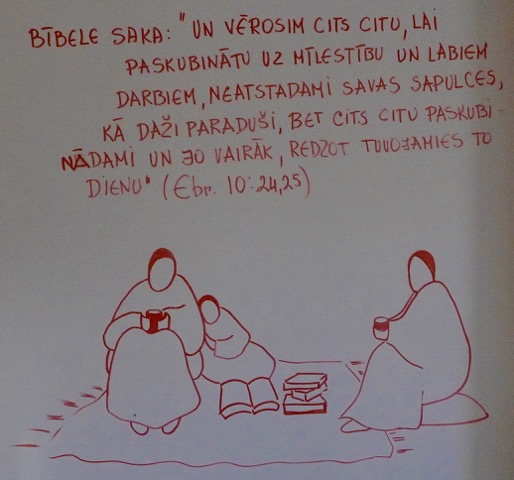 BĪBELE SAKA: "UN VĒROSIM CITS CITU, LAI
PASKUBINĀTU UZ MĪLESTĪBU UN LABIEM
DARBIEM, NEATSTADAMI SAVAS SAPULCES,
KĀ DAŽI PARADUŠI, BET CITS CITU PASKUBI-
NĀDAMI UN JO VAIRĀK, REDZOT TUVOJAMIES TO
DIENU" (Ebr. 10:24,25)